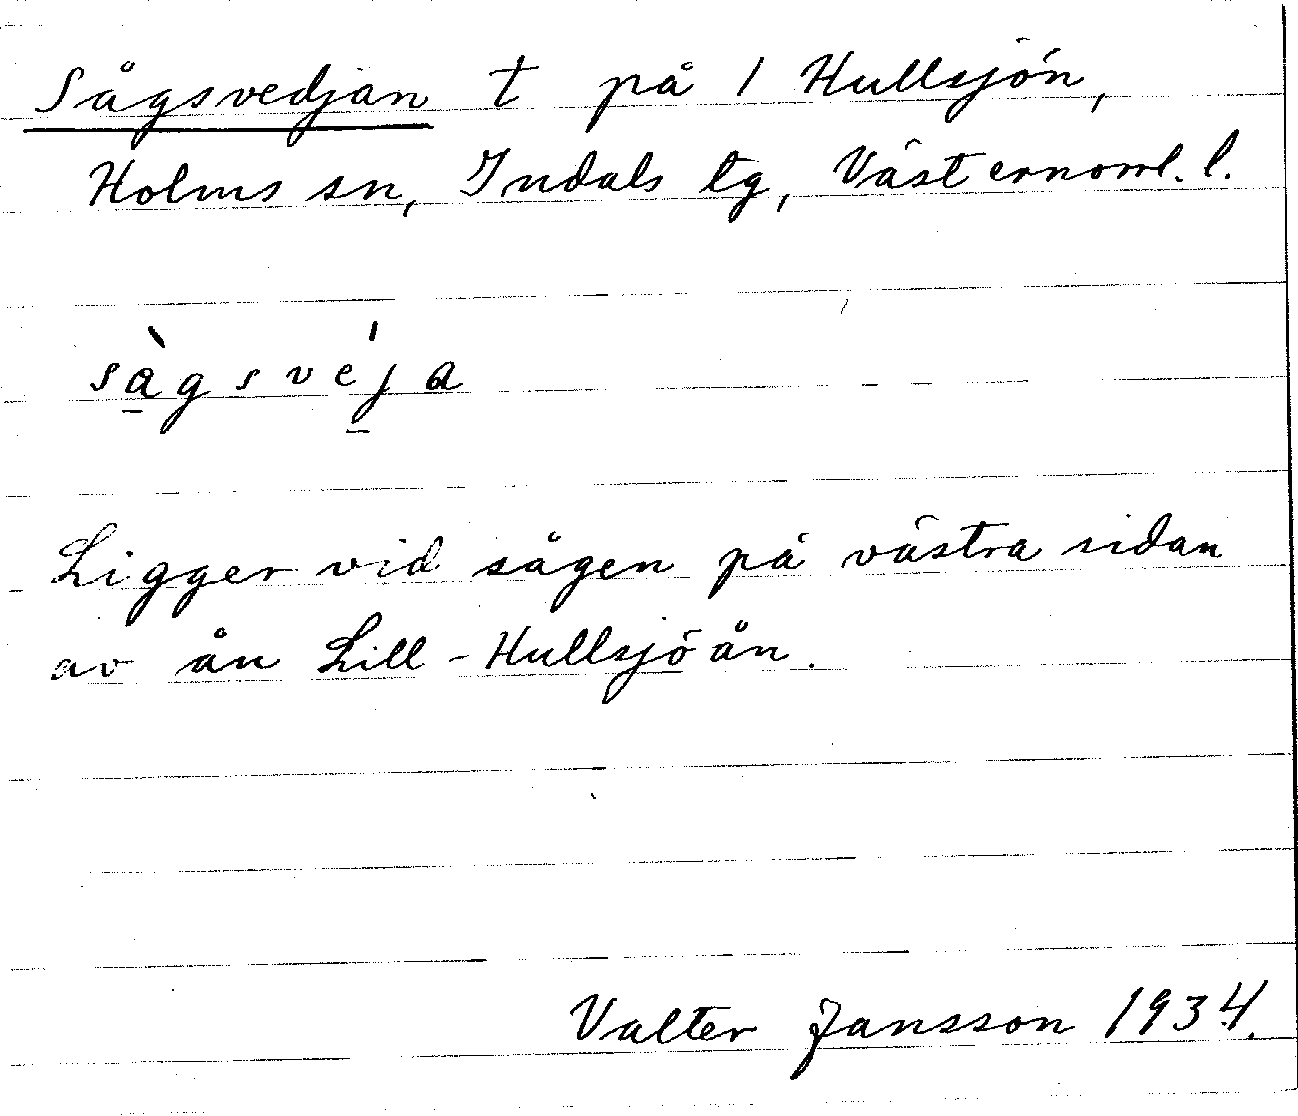 Sågsvedjan t på 1 Hullsjön,
Holms sn, Indals tg, Västernorrl. l.
sà̲gsvéj̲a
Ligger vid sågen på västra sidan
av ån Lill-Hullsjöån.
Valter Jansson 1934.